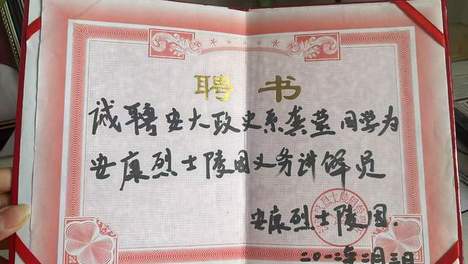 聘书
诚聘安大政史系龚莹同学为
安康烈士陵园义务讲解员
安康烈士陵园
二〇一二年二月三日